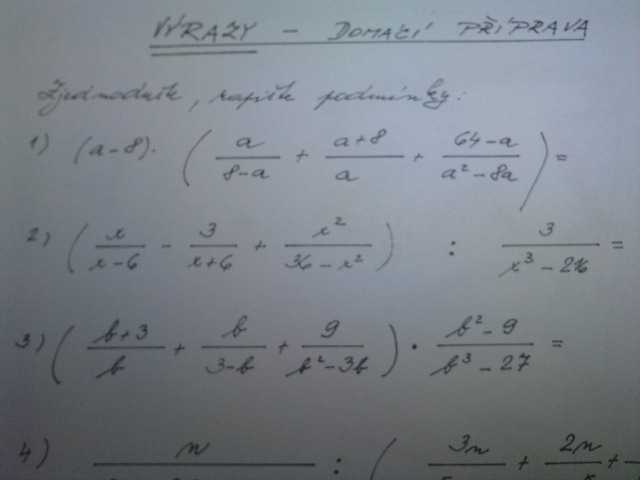 VÝRAZY – DOMÁCÍ PŘÍPRAVA
Zjednodušte, zapište podmínky:
1) (a-8)· ( a/(8-a) + (a+8)/a + (64-a)/(a²-8a) ) =
2) ( x/(x-6) - 3/(x+6) + x²/(36-x²) ) : 3/(x³-216) =
3) ( (b+3)/b + b/(3-b) + 9/(b²-3b) ) · (b²-9)/(b³-27) =
4) n : ( 3n + 2n +